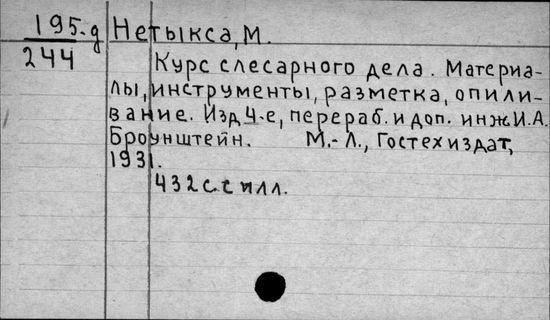 195-д Нетыкса, М.
244 Курс слесарного дела. Материа-
лы, инструменты, разметка, опили-
вание. Изд. 4-е, перераб. и доп. инж И.А.
Броунштейн. М.-Л., Гостехиздат,
1931.
432 с. с илл.